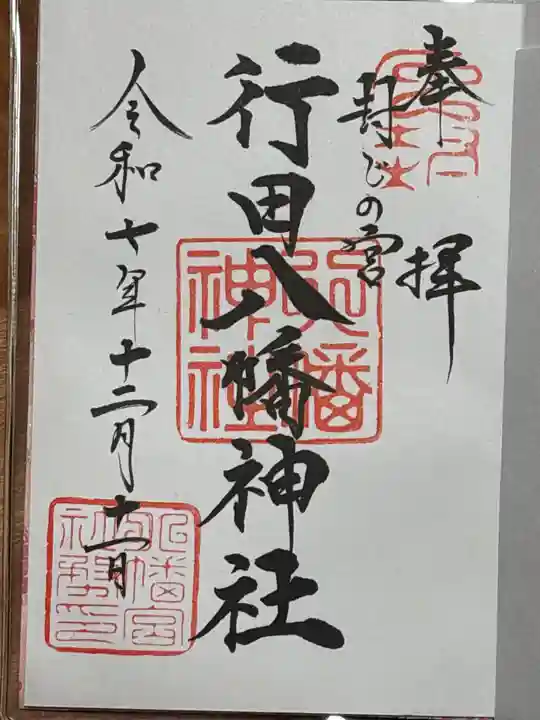 奉拝
封じの宮
行田八幡神社
八幡神社
令和七年十二月十一日